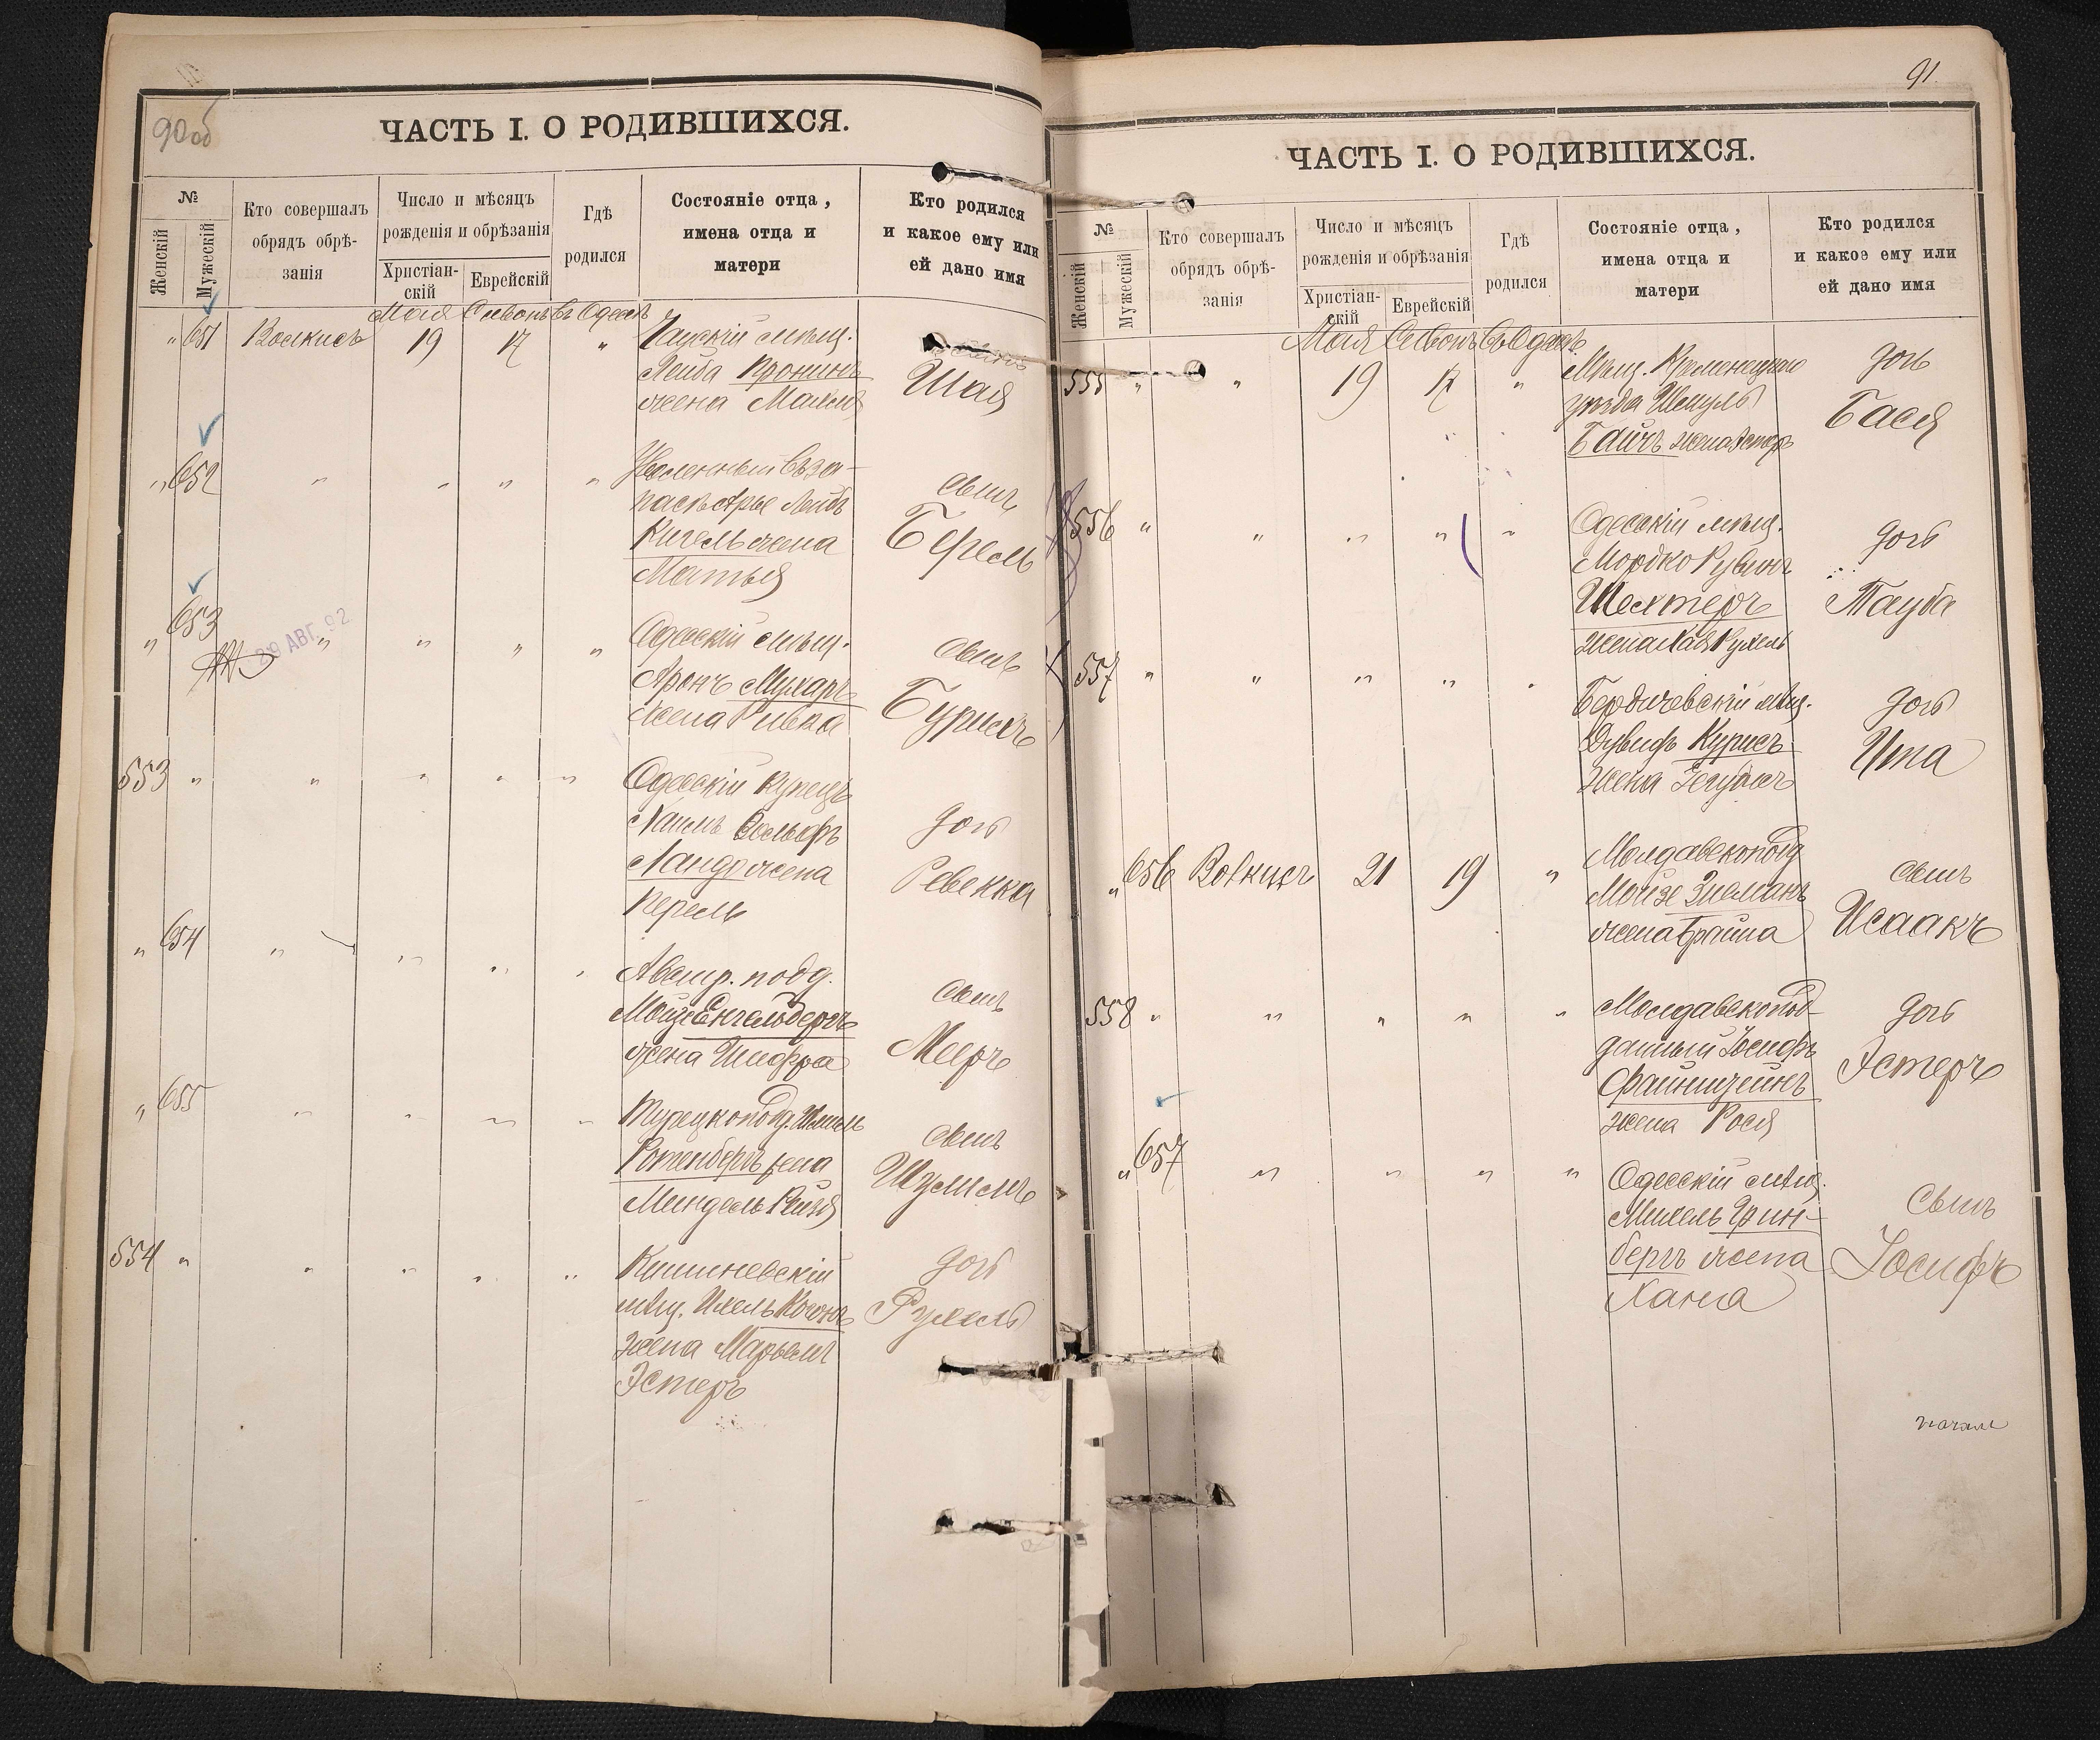 90об
ЧАСТЬ I. О РОДИВШИХСЯ.
№
Женскій
Мужескій
Кто совершалъ
обрядъ обрѣ-
занія
Число и мѣсяцъ
рожденія и обрѣзанія
Христіан-
скій
Еврейскій
Гдѣ
родился
Состояніе отца,
имена отца и
матери
Кто родился
и какое ему или
ей дано имя
Мая Сивонъ въ Одессѣ
" 651 Волкисъ 19 17 "
мѣщ.
Лейба Кронинъ
жена
Шая
" 652 " " " "
Уволенный въ за-
пасъ Арье Лейбъ
Кигель жена
Матья
сынъ
Берель
" 653 " " " "
29 АВГ. 92
Одесскій мѣщ.
Аронъ Мухаръ
жена Ривка
сынъ
Бурихъ
553 " " " " "
Одесскій купецъ
Хаимъ Вольфъ
Ландо жена
Перель
дочь
Ревекка
" 654 " " " "
Австр. подд.
Мойше Енгельбергъ
жена Шифра
сынъ
Мееръ
" 655 " " " "
Турецкопод.
Ротенбергъ жена
Миндель Рейзя
сынъ
Шулимъ
554 " " " " "
Кишиневскій
мѣщ. Ихель Когонъ
жена Марьямъ
Эстеръ
дочь
Рухель
91.
ЧАСТЬ I. О РОДИВШИХСЯ.
№
Женскій
Мужескій
Кто совершалъ
обрядъ обрѣ-
занія
Число и мѣсяцъ
рожденія и обрѣзанія
Христіан-
скій
Еврейскій
Гдѣ
родился
Состояніе отца,
имена отца и
матери
Кто родился
и какое ему или
ей дано имя
Мая Сивонъ въ Одессѣ
555 " " 19 17 "
Мѣщ. Кременецкаго
уѣзда Шмуль
жена Эстеръ
дочь
Бася
556 " " " " "
Одесскій мѣщ.
Мордко Рувинъ
Шехтеръ
жена Хая Рухель
дочь
Тауба
557 " " " " "
Бердичевскій мѣщ.
Дувидъ Курисъ
жена
дочь
Ита
" 656 Волкисъ 21 19 "
Молдавскопод
Мойзе Зисманъ
жена Брайна
сынъ
Исаакъ
558 " " " " "
Молдавскопод-
данный Іосифъ
Файнштейнъ
жена Рося
дочь
Эстеръ
" 657 " " " "
Одесскій мѣщ.
Михель Грин-
бергъ жена
Хана
сынъ
Іосифъ